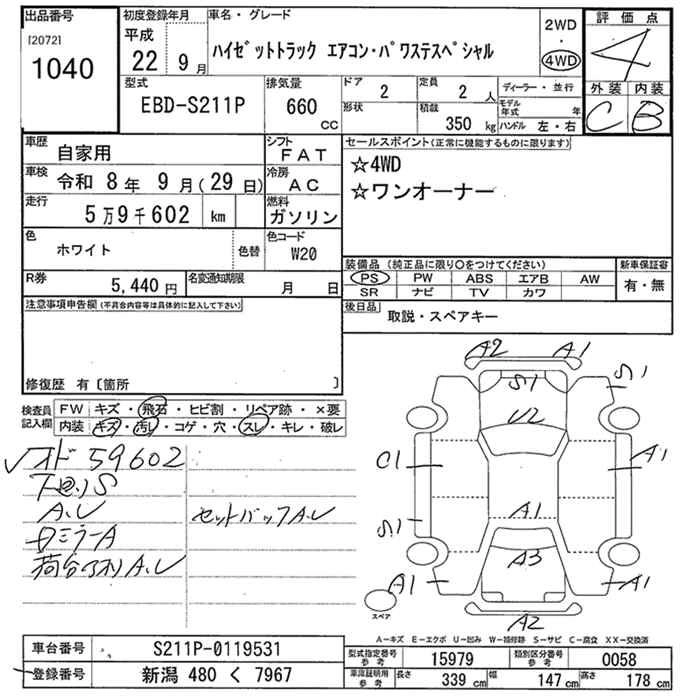 出品番号
[2072]
1040
初度登録年月
平成
22 9月
車名・グレード
ハイゼットトラック エアコン・パワステスペシャル
2WD
・
4WD
評価点
4
型式
EBD-S211P
排気量
660
CC
ドア
2
形状
定員
2人
積載
350 kg
ディーラー・並行
モデル年式 年
ハンドル 左・右
外装 内装
C B
車歴
自家用
シフト
FAT
車検
令和 8年 9月(29日)
冷房
AC
走行
5万9千602 km
燃料
ガソリン
色
ホワイト
色替
色コード
W20
R券
5,440円
名変通知期限
月 日
セールスポイント(正常に機能するものに限ります)
☆4WD
☆ワンオーナー
装備品(純正品に限り○をつけてください)
PS PW ABS エアB AW
SR ナビ TV カワ
新車保証書
有・無
後日品
取説・スペアキー
注意事項申告欄(不具合内容等は具体的に記入して下さい)
修復歴 有〔箇所 〕
検査員記入欄
FW キズ・飛石・ヒビ割・リペア跡・×要
内装 キズ・汚レ・コゲ・穴・スレ・キレ・破レ
オド 59602
下回リS
A.U
ロミラーA
荷台アオリA.U
セットバックA.U
A2 A1
S1 S1
U2
C1 A1
S1 A1
A3
A1 A1
A2
スペア
A−キズ E−エクボ U−凹み W−補修跡 S−サビ C−腐食 XX−交換済
車台番号
S211P-0119531
登録番号
新潟 480 く 7967
型式指定番号
参考
15979
類別区分番号
参考
0058
車庫証明用
参考
長さ
339 cm
幅
147 cm
高さ
178 cm